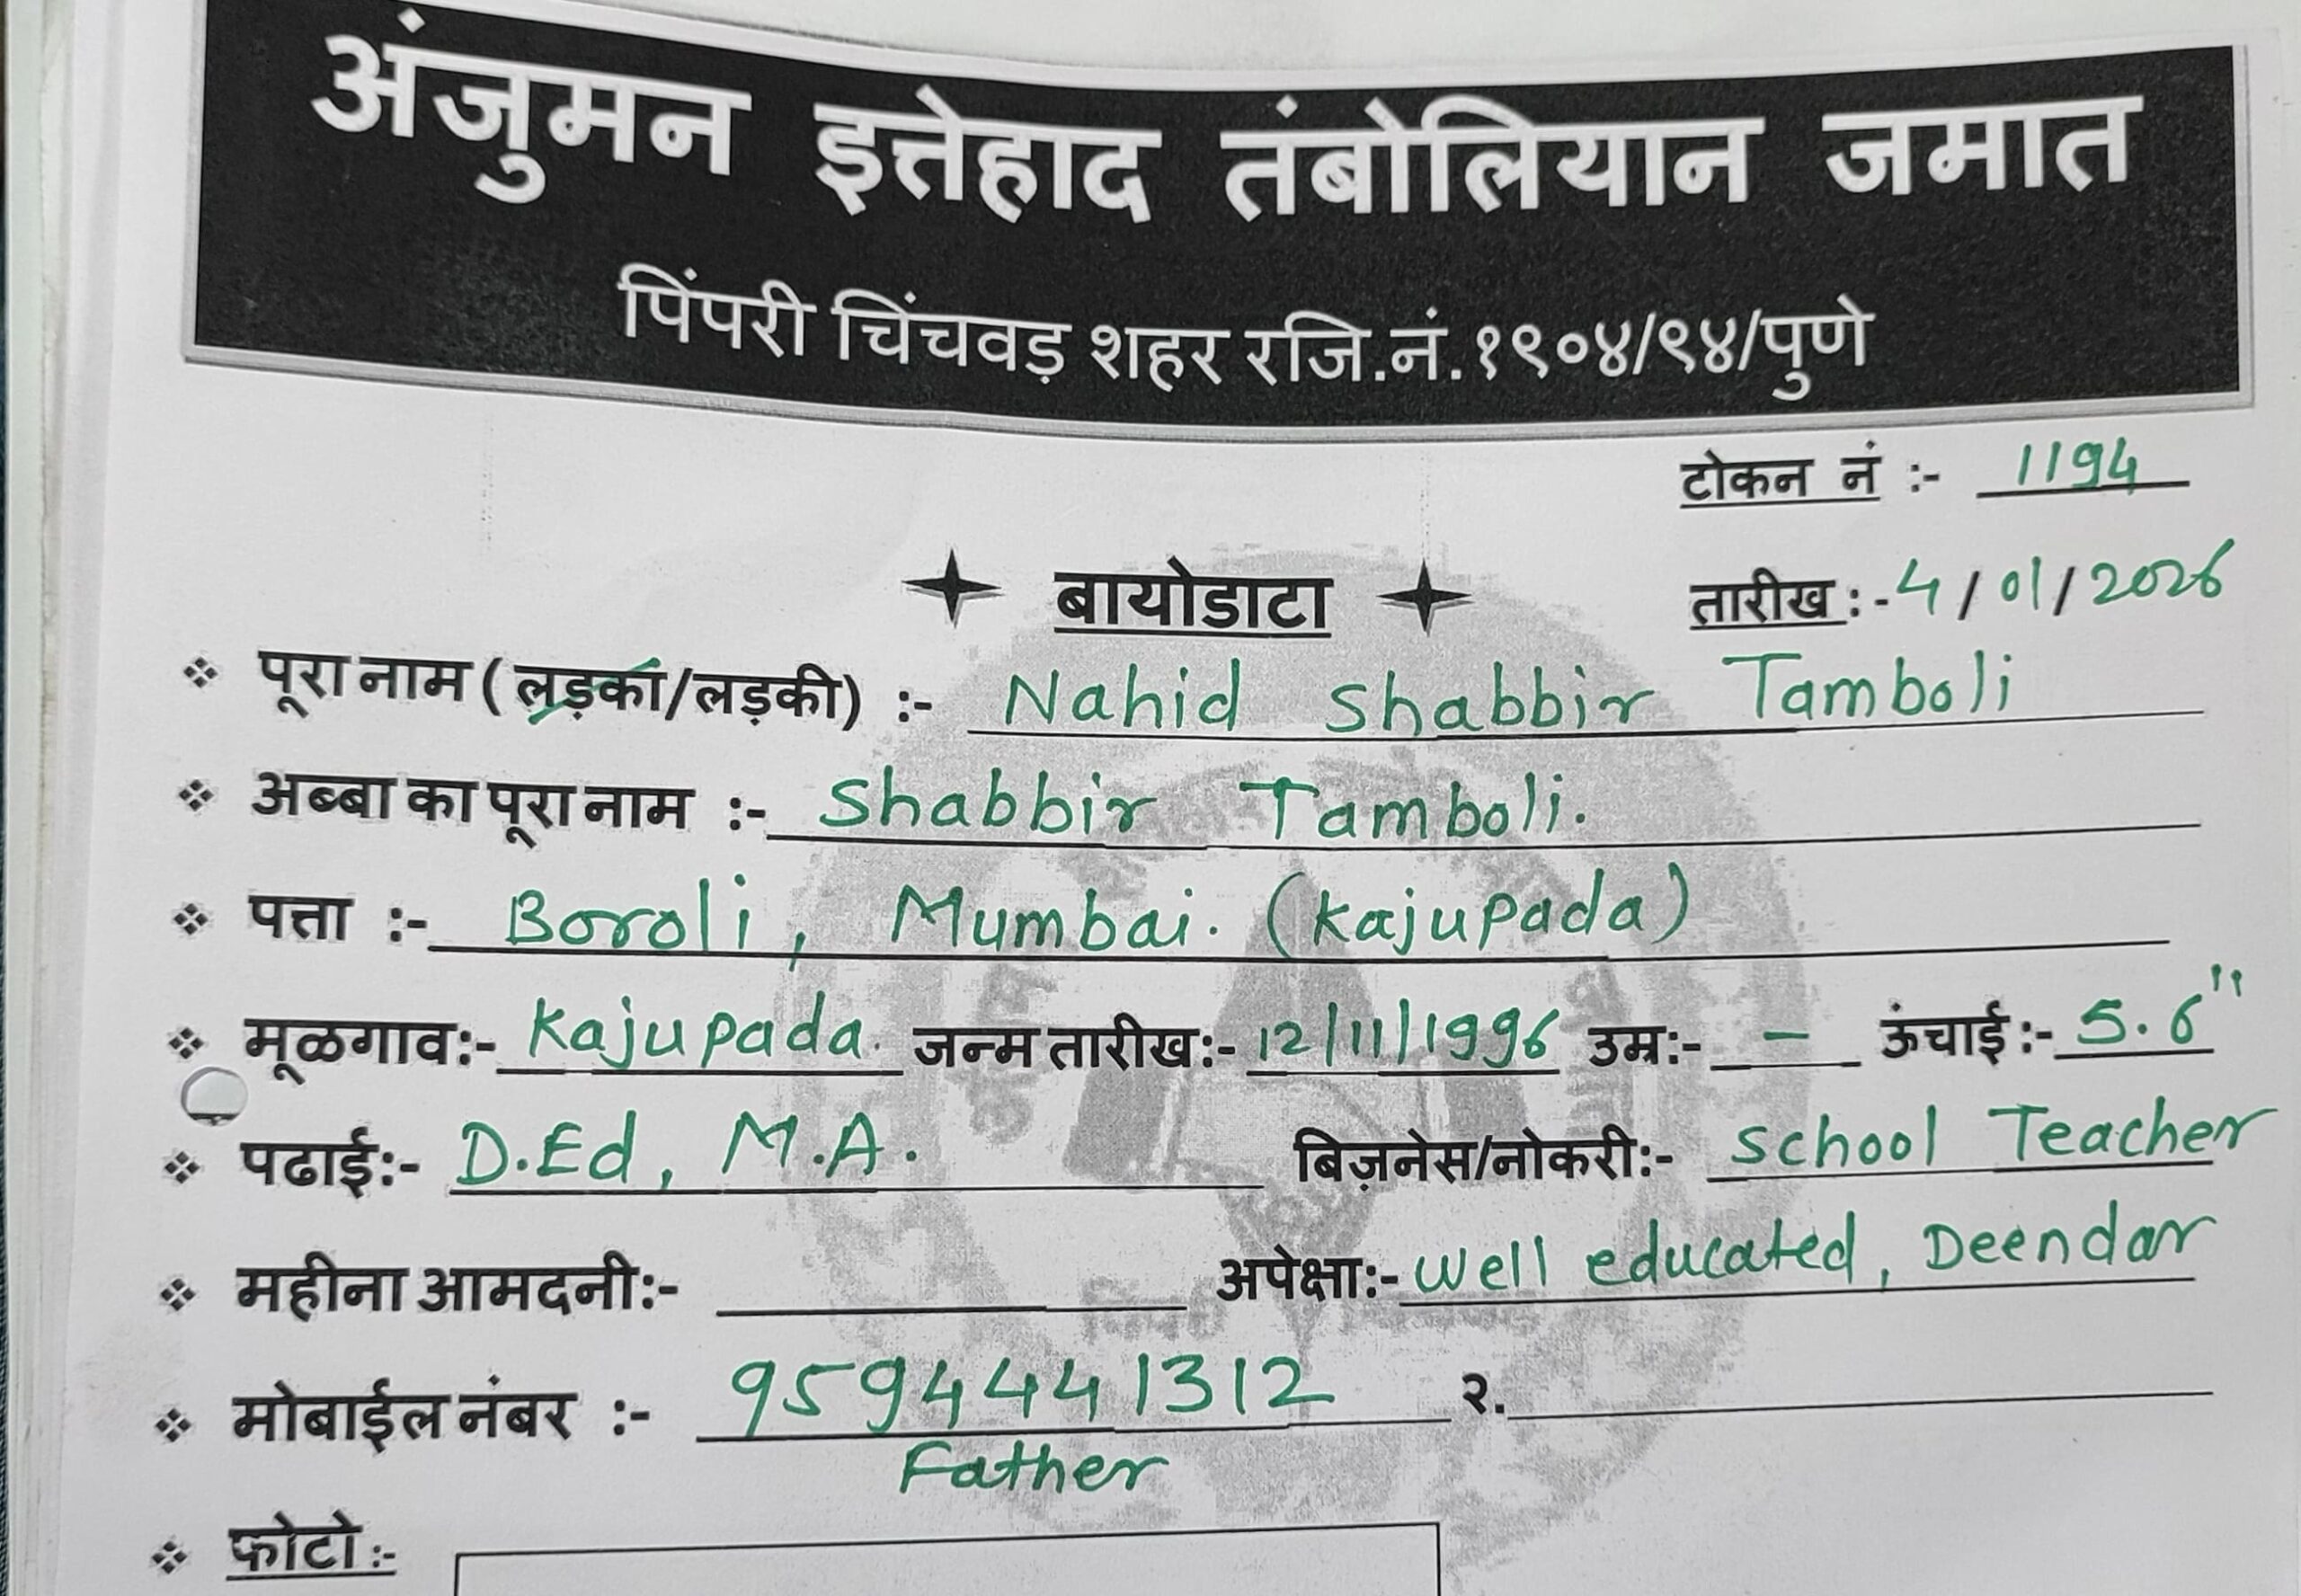 अंजुमन इत्तेहाद तंबोलियान जमात
पिंपरी चिंचवड़ शहर रजि.नं.१९०४/९४/पुणे
टोकन नं :- 1194
बायोडाटा
तारीख :- 4/01/2026
पूरा नाम ( लड़का/लड़की) :- Nahid Shabbir Tamboli
अब्बा का पूरा नाम :- Shabbir Tamboli.
पत्ता :- Boroli, Mumbai. (Kajupada)
मूळगाव:- Kajupada. जन्म तारीख:- 12/11/1996 उम्र:- – ऊंचाई:- 5.6"
पढाई:- D.Ed, M.A. बिज़नेस/नोकरी:- School Teacher
महीना आमदनी:- अपेक्षा:- Well educated, Deendar
मोबाईल नंबर :- 9594441312 २.
Father
फोटो :-